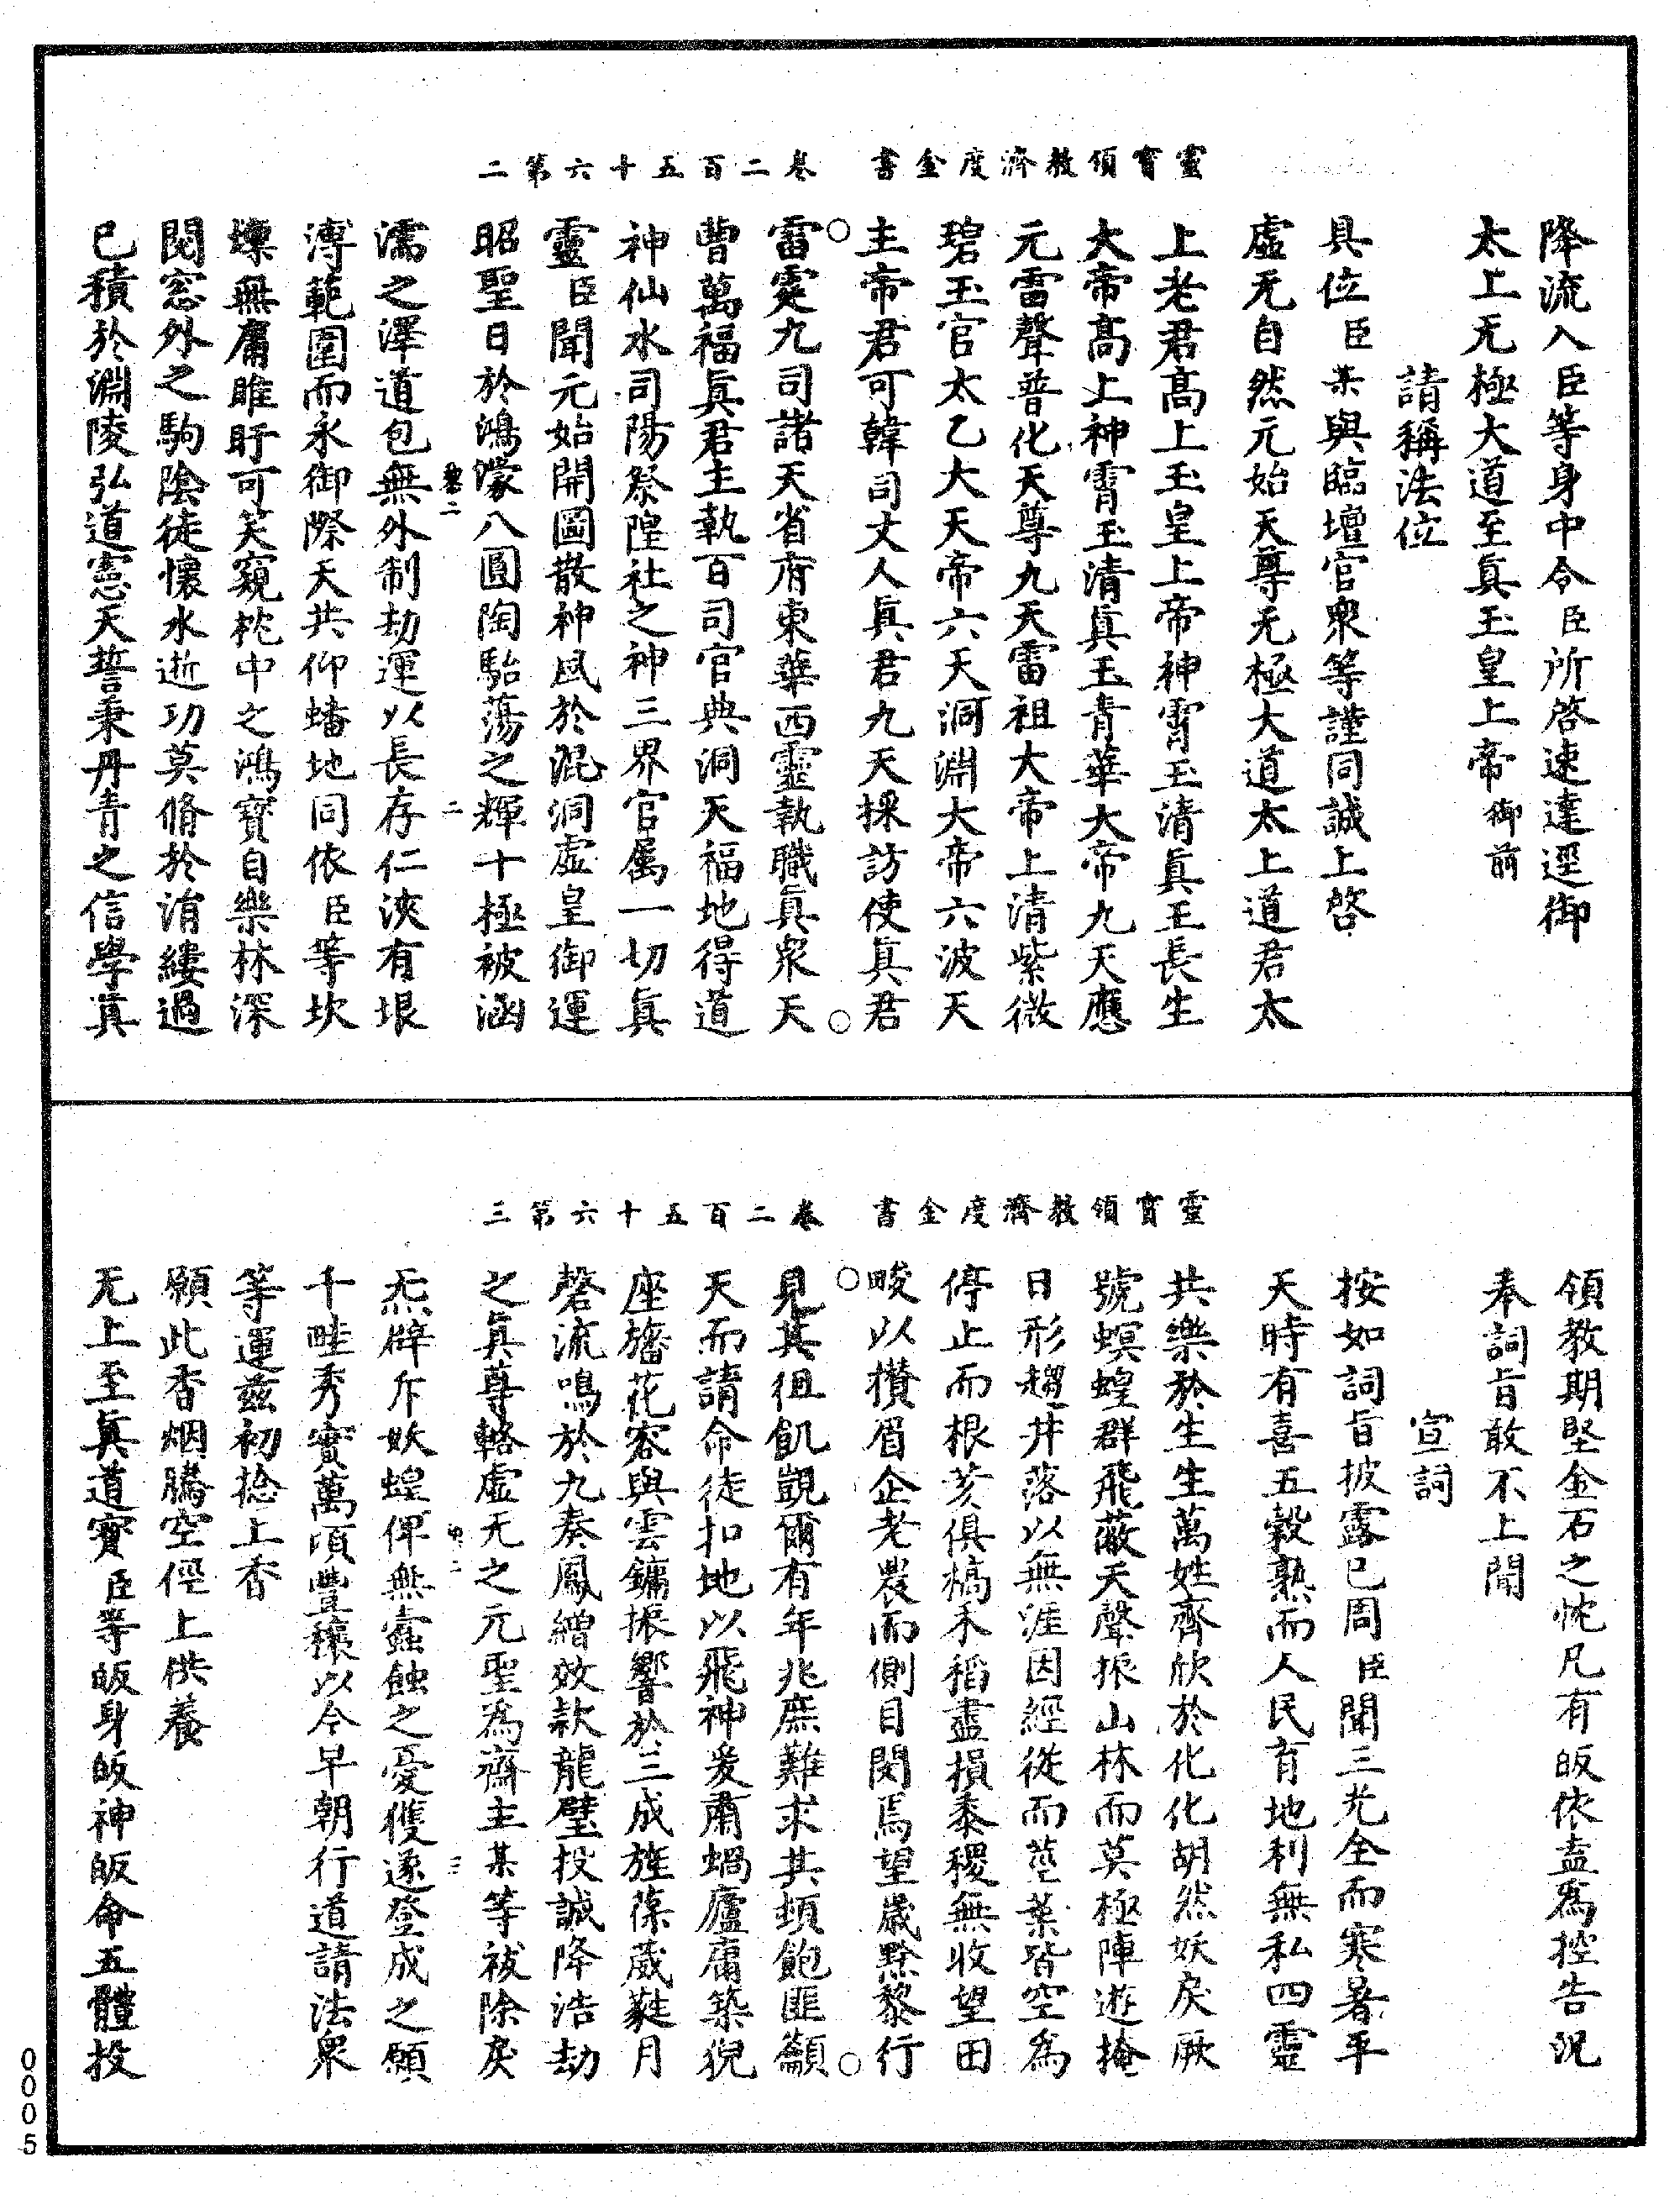 靈寳領教濟度金書　卷二百五十六第二
降流入臣等身中令臣所啓速達逕御
太上无極大道至真玉皇上帝御前
請稱法位
具位臣某與臨壇官衆等謹同誠上啓
虛无自然元始天尊无極大道太上道君太
上老君高上玉皇上帝神霄玉清真王長生
大帝高上神霄玉清真王青華大帝九天應
元雷聲普化天尊九天雷祖大帝上清紫微
碧玉宮太乙大天帝六天洞淵大帝六波天
主帝君可韓司丈人真君九天採訪使真君
雷霆九司諸天省府東華西靈執職真衆天
曹萬福真君主執百司官典洞天福地得道
神仙水司陽祭隍社之神三界官屬一切真
靈臣聞元始開圖散神風於混洞虛皇御運
昭聖日於鴻濛八圓陶駘蕩之輝十極被涵
濡之澤道包無外制劫運以長存仁浹有垠
溥範圍而永御際天共仰蟠地同依臣等坎
燣無庸睢盱可笑窺枕中之鴻寳自樂林深
閱窓外之駒陰徒懷水逝功莫脩於涓縷過
已積於淵陵弘道憲天誓秉丹青之信學真
靈寳領教濟度金書　卷二百五十六第三
領教期堅金石之忱凡有皈依盍爲控告況
奉詞旨敢不上聞
宣詞
按如詞旨披露已周臣聞三光全而寒暑平
天時有喜五穀熟而人民育地利無私四靈
共樂於生生萬姓齊欣於化化胡然妖戾厥
號螟蝗群飛蔽天聲振山林而莫極陣遊掩
日形趨井落以無涯因經從而莖葉皆空爲
停止而根荄俱槁禾稻盡損黍稷無收望田
畯以攢眉企老農而側目閔焉望歲黙黎行
見其徂飢覬爾有年兆庶難求其頃飽匪籲
天而請命徒扣地以飛神爰肅蝸廬庸築猊
座旛花容與雲鏞振響於三成旌葆葳蕤月
磬流鳴於九奏鳳繒效款龍璧投誠降浩劫
之真尊輅虛无之元聖爲齋主某等祓除戾
炁辟斥妖蝗俾無蠹蝕之憂獲遂登成之願
千畦秀實萬頃豐穰以今早朝行道請法衆
等運兹初捻上香
願此香烟騰空徑上供養
无上至真道寳臣等皈身皈神皈命五體投
0005